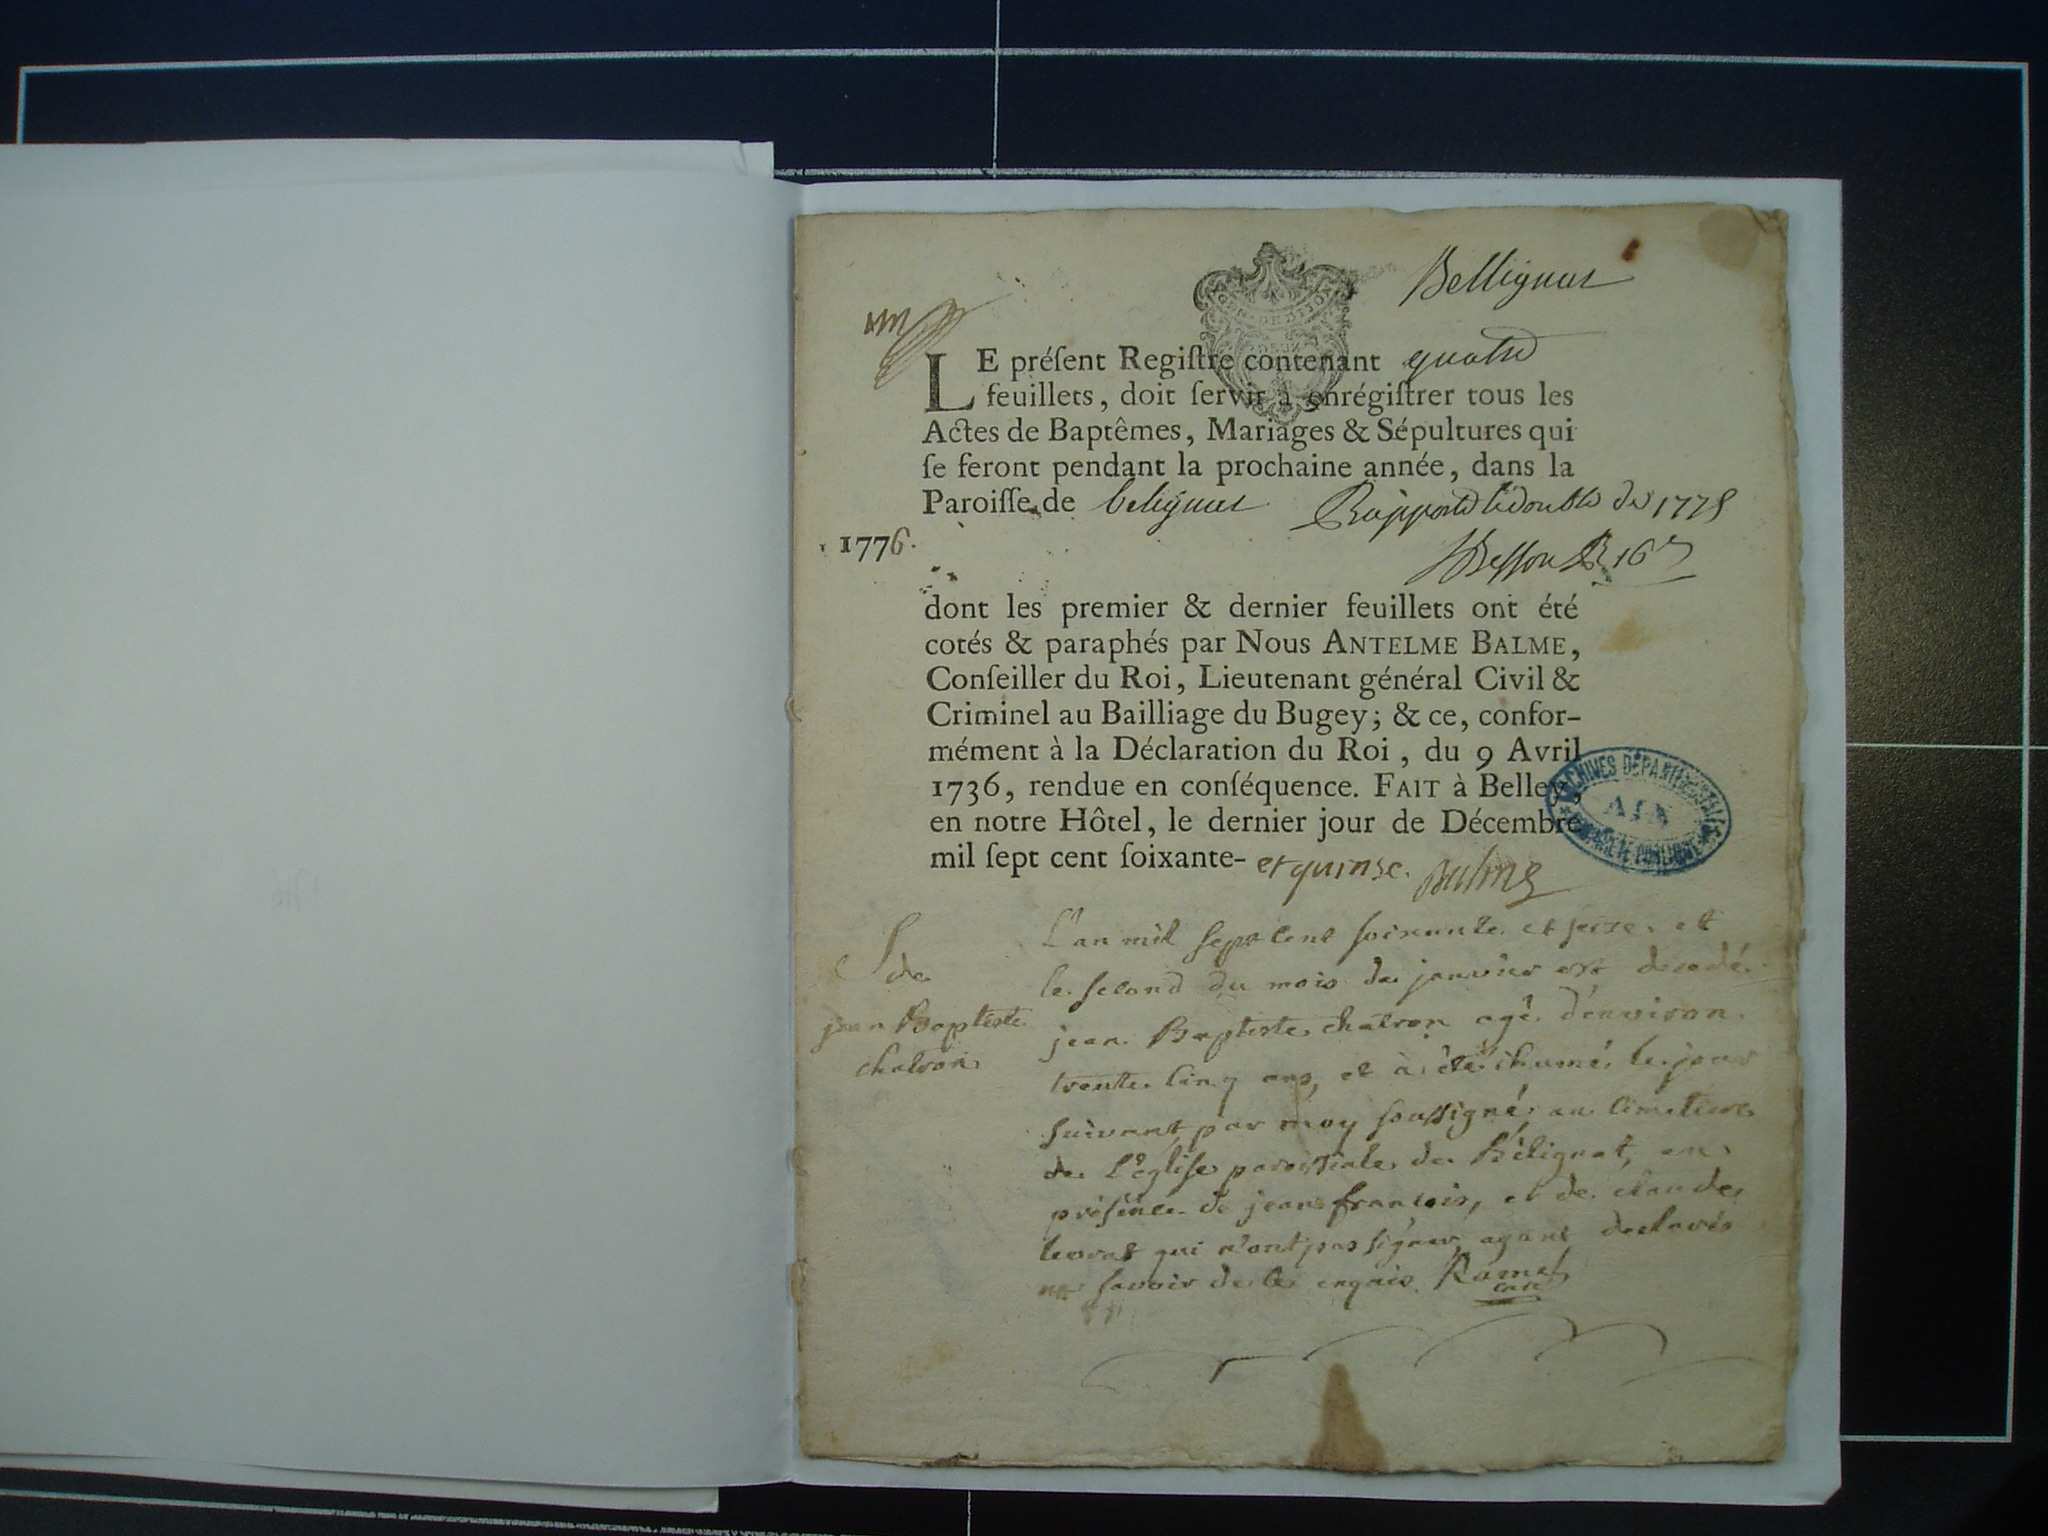 Bellignat
LE préſent Regiſtre contenant quatre
feuillets, doit ſervir à enrégiſtrer tous les
Actes de Baptêmes, Mariages & Sépultures qui
ſe feront pendant la prochaine année, dans la
Paroiſſe de belignat Rapporté le double de 1775
1776.
Besson
dont les premier & dernier feuillets ont été
cotés & paraphés par Nous ANTELME BALME,
Conſeiller du Roi, Lieutenant général Civil &
Criminel au Bailliage du Bugey; & ce, confor-
mément à la Déclaration du Roi, du 9 Avril
1736, rendue en conſéquence. FAIT à Belley,
en notre Hôtel, le dernier jour de Décembre
mil ſept cent ſoixante- et quinse. Balme
ARCHIVES DÉPARTEMENTALES
AIN
S
de
jean Baptiste
chatron
L'an mil sept cent soixante et seize et
le second du mois de janvier est decedé
jean Baptiste chatron agé d'environ
trente cinq ans, et à été inhumé le jour
suivant par moy soussigné au cimetiere
de l'église paroissiale de Bélignat, en
présence de jean françois, et de claude
levrat qui n'ont pas signer ayant declarés
ne savoir de ce enquis. Ramel
curé